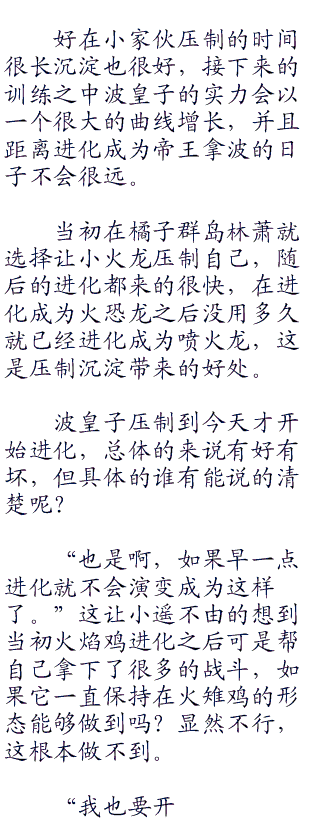 好在小家伙压制的时间
很长沉淀也很好，接下来的
训练之中波皇子的实力会以
一个很大的曲线增长，并且
距离进化成为帝王拿波的日
子不会很远。
当初在橘子群岛林萧就
选择让小火龙压制自己，随
后的进化都来的很快，在进
化成为火恐龙之后没用多久
就已经进化成为喷火龙，这
是压制沉淀带来的好处。
波皇子压制到今天才开
始进化，总体的来说有好有
坏，但具体的谁有能说的清
楚呢？
“也是啊，如果早一点
进化就不会演变成为这样
了。”这让小遥不由的想到
当初火焰鸡进化之后可是帮
自己拿下了很多的战斗，如
果它一直保持在火雉鸡的形
态能够做到吗？显然不行，
这根本做不到。
“我也要开